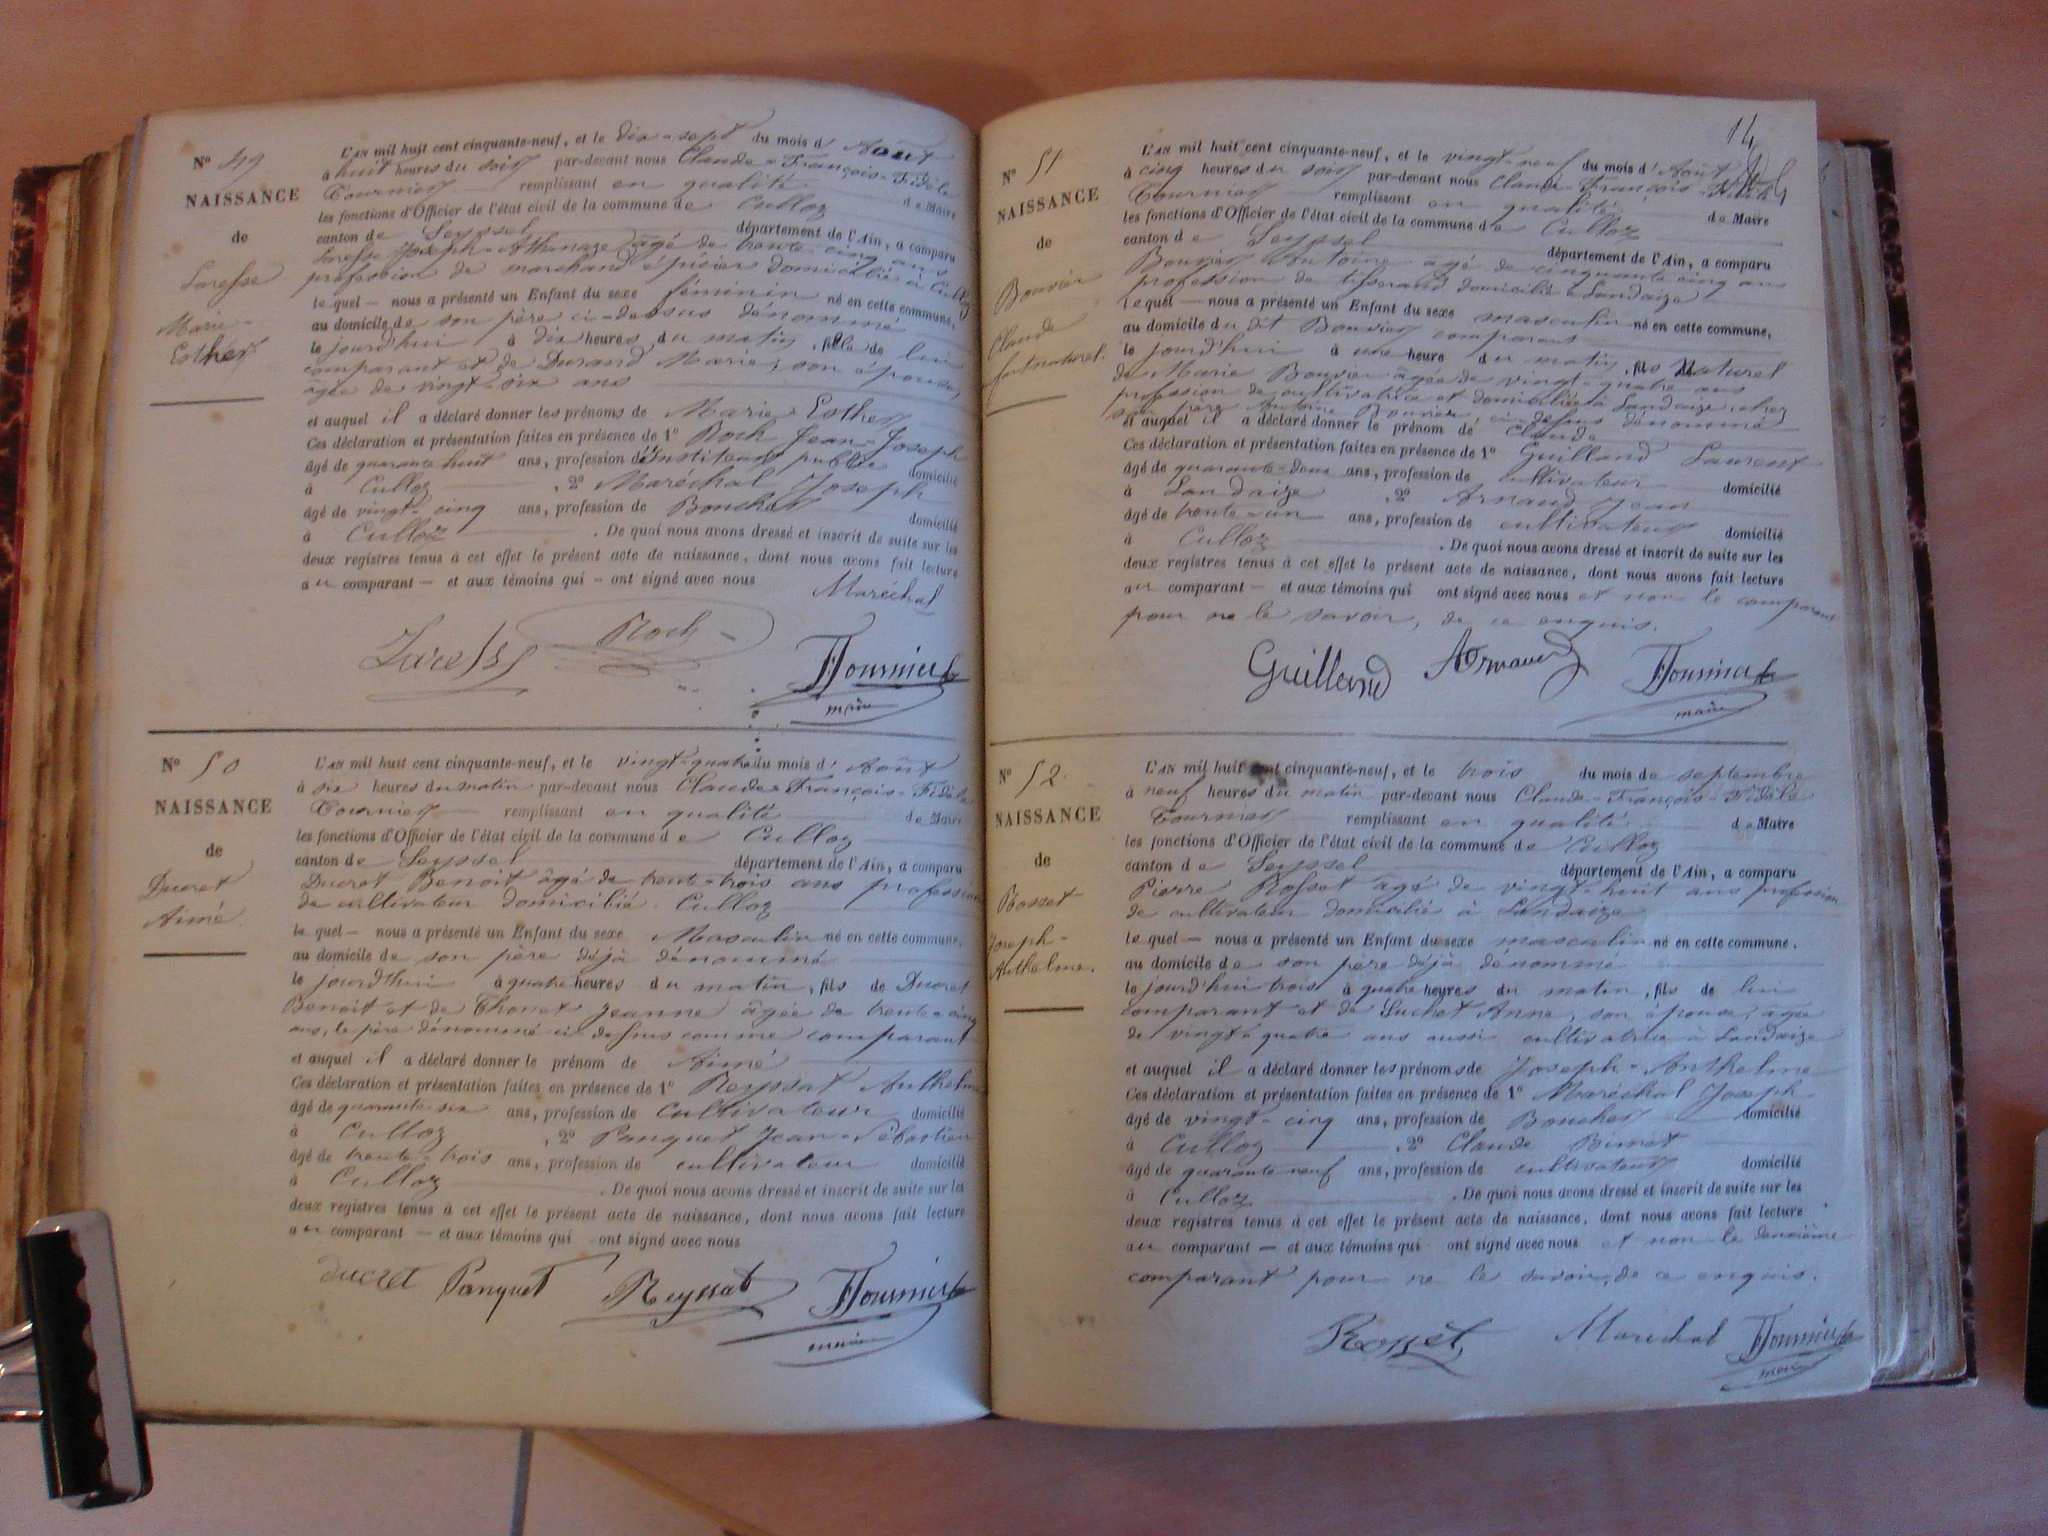 N° 49
NAISSANCE
de
Laresse
Marie-
Esther
L'AN mil huit cent cinquante-neuf, et le dix-sept du mois d'Août
à huit heures du soir par-devant nous Claude-François-Fidèle
Tournier remplissant en qualité de Maire
les fonctions d'Officier de l'état civil de la commune de Culloz
canton de Seyssel département de l'Ain, a comparu
Laresse Joseph-Athanaze âgé de trente-cinq ans
profession de marchand épicier domicilié à Culloz
lequel — nous a présenté un Enfant du sexe féminin né en cette commune,
au domicile de son père ci-dessus dénommé
le jourd'hui à dix heures du matin, fille de lui
comparant et de Durand Marie, son épouse,
âgée de vingt-six ans
et auquel il a déclaré donner les prénoms de Marie Esther
Ces déclaration et présentation faites en présence de 1° Roch Jean-Joseph
âgé de quarante huit ans, profession d'Instituteur public domicilié
à Culloz , 2° Maréchal Joseph
âgé de vingt-cinq ans, profession de Boucher domicilié
à Culloz . De quoi nous avons dressé et inscrit de suite sur les
deux registres tenus à cet effet le présent acte de naissance, dont nous avons fait lecture
au comparant — et aux témoins qui — ont signé avec nous
Maréchal
Laresse Roch Tournier
maire
N° 50
NAISSANCE
de
Ducret
Aimé.
L'AN mil huit cent cinquante-neuf, et le vingt-quatre du mois d'Août
à six heures du matin par-devant nous Claude-François-Fidèle
Tournier remplissant en qualité de Maire
les fonctions d'Officier de l'état civil de la commune de Culloz
canton de Seyssel département de l'Ain, a comparu
Ducret Benoit âgé de trente-trois ans profession
de cultivateur domicilié Culloz
lequel — nous a présenté un Enfant du sexe Masculin né en cette commune,
au domicile de son père déjà dénommé
le jourd'hui à quatre heures du matin, fils de Ducret
Benoit et de Thonet Jeanne âgée de trente-cinq
ans, le père dénommé ci-dessus comme comparant
et auquel il a déclaré donner le prénom de Aimé
Ces déclaration et présentation faites en présence de 1° Reyssat Anthelme
âgé de quarante six ans, profession de cultivateur domicilié
à Culloz , 2° Panquet Jean-Sébastien
âgé de trente-trois ans, profession de cultivateur domicilié
à Culloz . De quoi nous avons dressé et inscrit de suite sur les
deux registres tenus à cet effet le présent acte de naissance, dont nous avons fait lecture
au comparant — et aux témoins qui ont signé avec nous
Ducret Panquet Reyssat Tournier
maire
14
N° 51
NAISSANCE
de
Bouvier
Claude
enfant naturel.
L'AN mil huit cent cinquante-neuf, et le vingt-neuf du mois d'Août
à cinq heures du soir par-devant nous Claude-François-Fidèle
Tournier remplissant en qualité de Maire
les fonctions d'Officier de l'état civil de la commune de Culloz
canton de Seyssel département de l'Ain, a comparu
Bouvier Antoine âgé de cinquante cinq ans
profession de tisserand domicilié à Landaize
lequel — nous a présenté un Enfant du sexe masculin né en cette commune,
au domicile du dit Bouvier comparant
le jourd'hui à une heure du matin, fils Naturel
de Marie Bouvier âgée de vingt-quatre ans
profession de cultivatrice et domiciliée à Landaize chez
son père Antoine Bouvier, ci-dessus dénommé
et auquel il a déclaré donner le prénom de Claude
Ces déclaration et présentation faites en présence de 1° Guilland Laurent
âgé de quarante-deux ans, profession de cultivateur domicilié
à Landaize , 2° Arnaud Jean
âgé de trente-un ans, profession de cultivateur domicilié
à Culloz . De quoi nous avons dressé et inscrit de suite sur les
deux registres tenus à cet effet le présent acte de naissance, dont nous avons fait lecture
au comparant — et aux témoins qui ont signé avec nous et non le comparant
pour ne le savoir, de ce enquis.
Guilland Arnaud Tournier
maire
N° 52
NAISSANCE
de
Rosset
Joseph-
Anthelme.
L'AN mil huit cent cinquante-neuf, et le trois du mois de septembre
à neuf heures du matin par-devant nous Claude-François-Fidèle
Tournier remplissant en qualité de Maire
les fonctions d'Officier de l'état civil de la commune de Culloz
canton de Seyssel département de l'Ain, a comparu
Pierre Rosset âgé de vingt-huit ans profession
de cultivateur domicilié à Landaize
lequel — nous a présenté un Enfant du sexe masculin né en cette commune.
au domicile de son père déjà dénommé
le jourd'hui trois à quatre heures du matin, fils de lui
comparant et de Suchet Anne, son épouse, âgée
de vingt quatre ans aussi cultivatrice à Landaize
et auquel il a déclaré donner les prénoms de Joseph-Anthelme
Ces déclaration et présentation faites en présence de 1° Maréchal Joseph
âgé de vingt-cinq ans, profession de Boucher domicilié
à Culloz , 2° Claude
âgé de quarante neuf ans, profession de cultivateur domicilié
à Culloz . De quoi nous avons dressé et inscrit de suite sur les
deux registres tenus à cet effet le présent acte de naissance, dont nous avons fait lecture
au comparant — et aux témoins qui ont signé avec nous et non le deuxième
comparant pour ne le savoir, de ce enquis.
Rosset Maréchal Tournier
maire